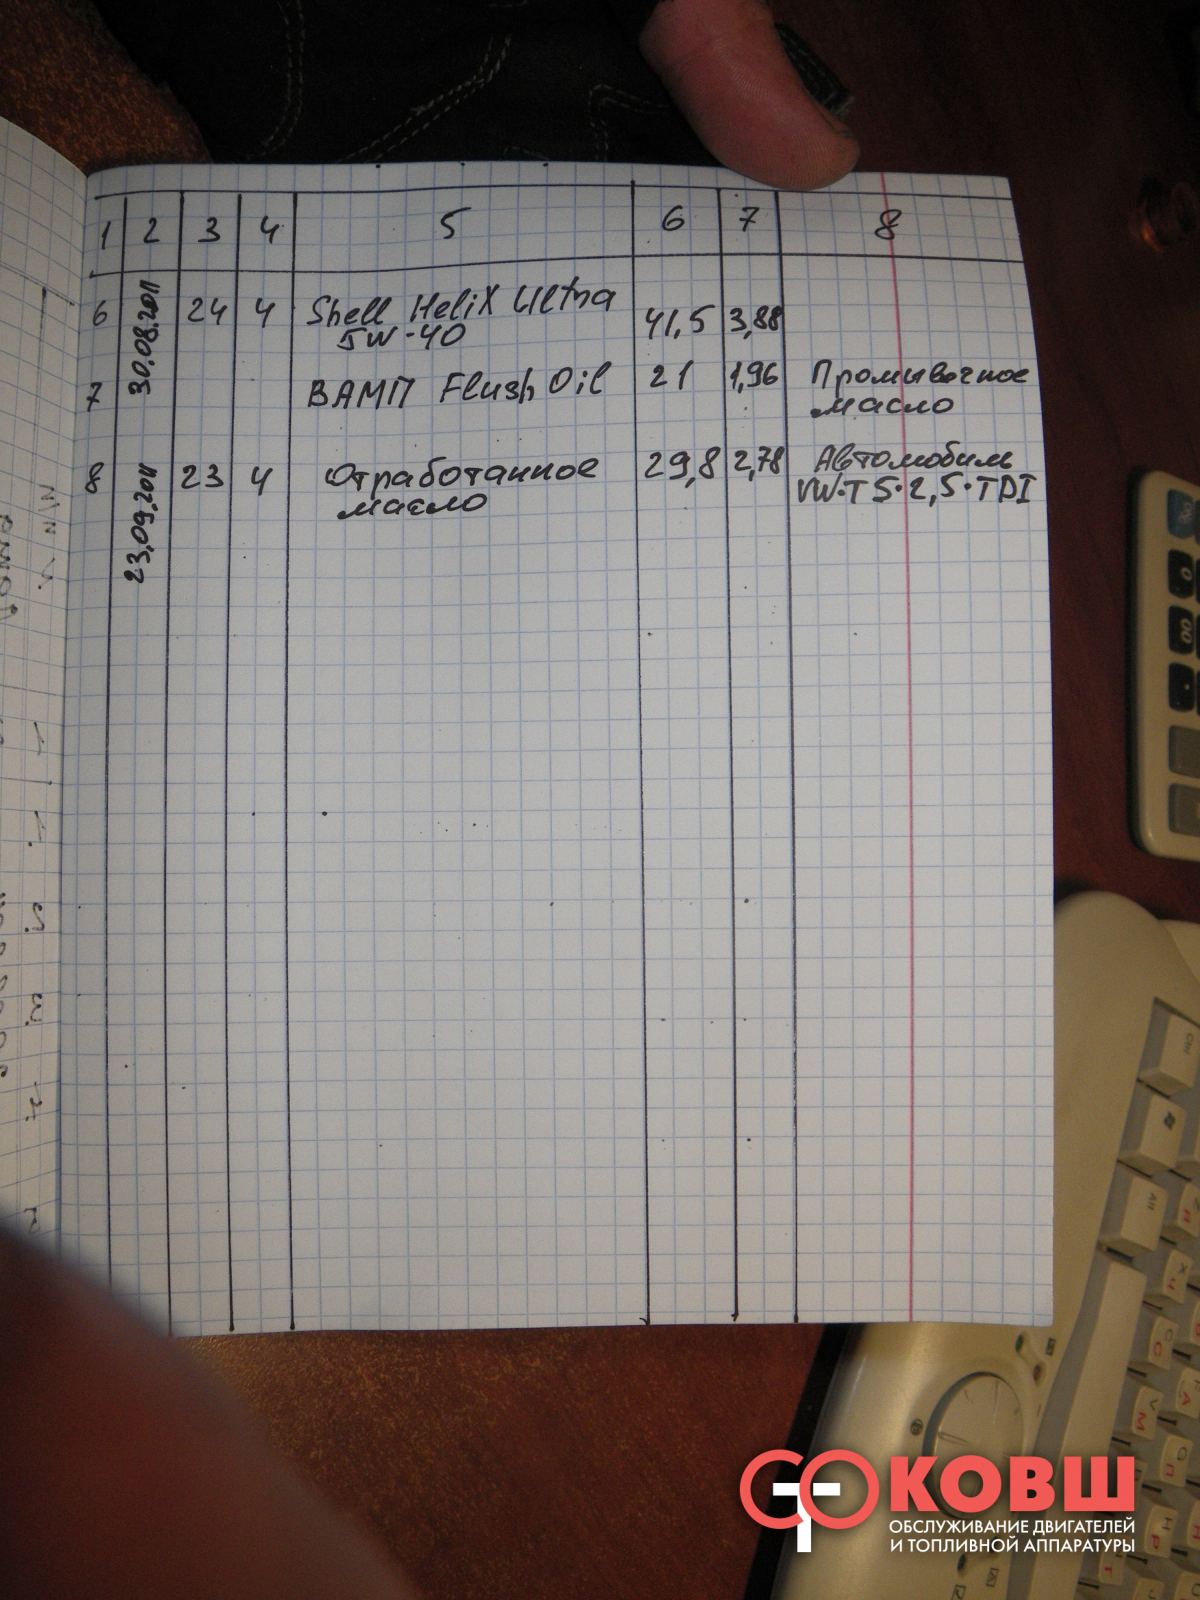 1 2 3 4 5 6 7 8
6 30.08.2011 24 4 Shell Helix Ultra
5W-40 41,5 3,88
7 ВАМП Flush Oil 21 1,96 Промывочное
масло
8 23.09.2011 23 4 Отработанное 29,8 2,78 Автомобиль
масло VW·T5·2,5·TDI
СТО КОВШ
ОБСЛУЖИВАНИЕ ДВИГАТЕЛЕЙ
И ТОПЛИВНОЙ АППАРАТУРЫ